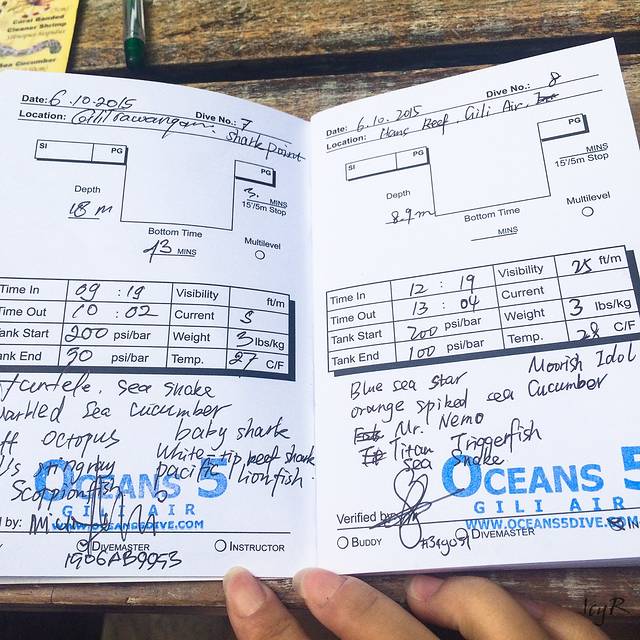 Coral Banded
Cleaner Shrimp
Sea Cucumber
Date: 6.10.2015
Dive No.: 7
Location: Gili Trawangan. Shark point
SI PG
PG
Depth
18 m
3 MINS
15'/5m Stop
Bottom Time
43 MINS
Multilevel
Time In 09 : 19 Visibility ft/m
Time Out 10 : 02 Current S
Tank Start 200 psi/bar Weight 3 lbs/kg
Tank End 50 psi/bar Temp. 27 C/F
sea snake
Sea cucumber
octopus baby shark
stingray White-tip reef shark
Scorpionfish pacific lionfish.
OCEANS 5
GILI AIR
WWW.OCEANS5DIVE.COM
by:
DIVEMASTER INSTRUCTOR
Date: 6.10.2015
Dive No.: 8
Location: Hans Reef. Gili Air.
SI PG
PG
Depth
8.9m
MINS
15'/5m Stop
Bottom Time
MINS
Multilevel
Time In 12 : 19 Visibility 25 ft/m
Time Out 13 : 04 Current
Tank Start 200 psi/bar Weight 3 lbs/kg
Tank End 100 psi/bar Temp. 28 C/F
Blue sea star Moorish Idol
orange spiked sea Cucumber
Mr. Nemo
Titan Triggerfish
sea snake
OCEANS 5
GILI AIR
WWW.OCEANS5DIVE
Verified by:
BUDDY DIVEMASTER IN
IcyR